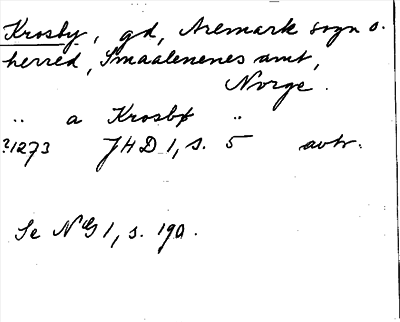 Krosby, gd, Aremark sogn o.
herred, Smaalenenes amt,
Norge.
" a Krosbø "
?1273 JHD 1, s. 5 avtr.
Se NG 1, s. 190.